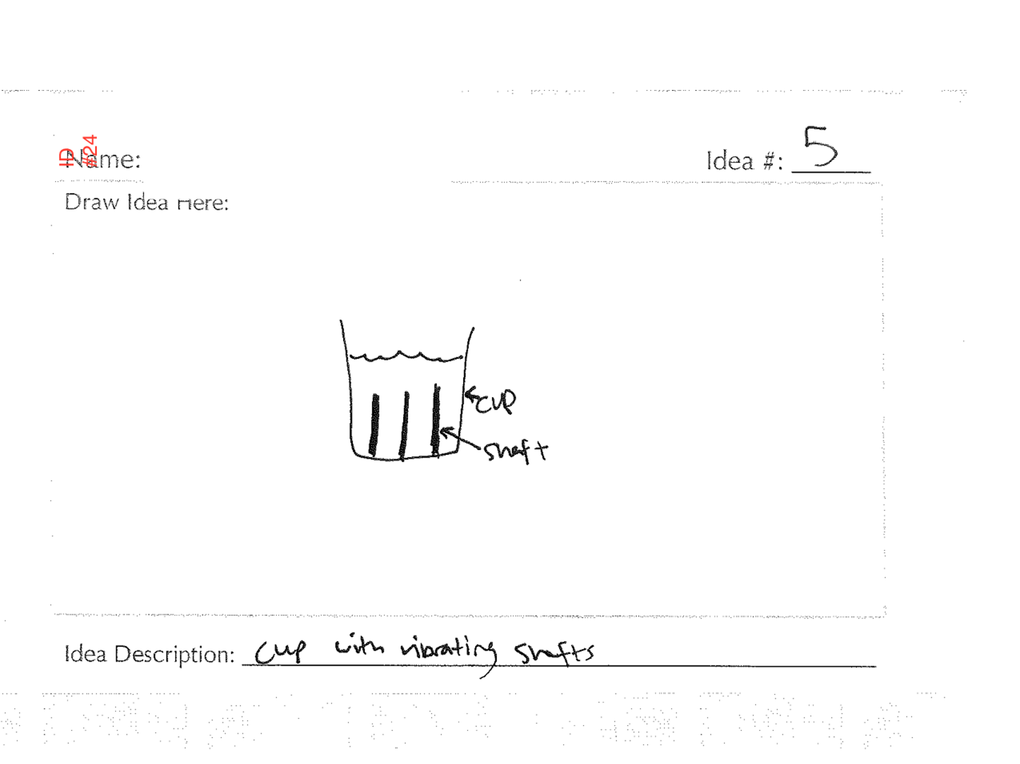 ID #24
Name:
Idea #: 5
Draw Idea Here:
cup
shaft
Idea Description: cup with vibrating shafts